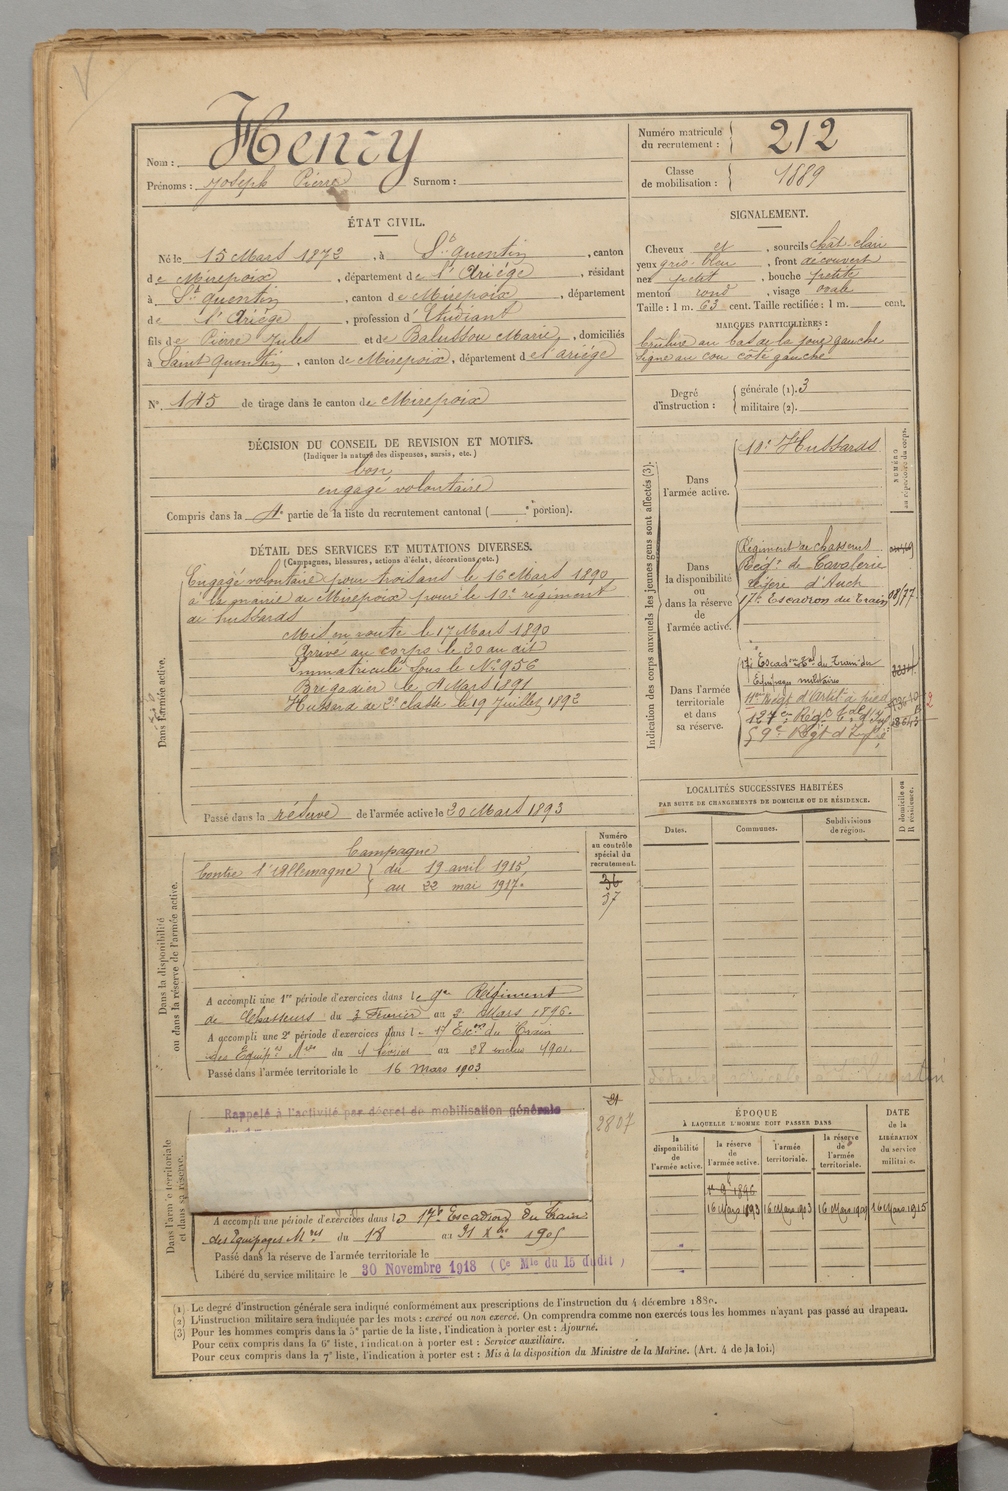 Nom : Henry
Prénoms : Joseph Pierre Surnom :
Numéro matricule du recrutement : 212
Classe de mobilisation : 1889
ÉTAT CIVIL.
Né le 15 Mars 1872, à St Quentin, canton
de Mirepoix, département de l'Ariége, résidant
à St quentin, canton de Mirepoix, département
de l'Ariége, profession d'Etudiant
fils de Pierre Jules et de Balussou Marie, domiciliés
à Saint Quentin, canton de Mirepoix, département d l'ariége
N° 145 de tirage dans le canton de Mirepoix
SIGNALEMENT.
Cheveux et, sourcils chât-clair
yeux gris-bleu, front découvert
nez petit, bouche petite
menton rond, visage ovale
Taille : 1 m. 63 cent. Taille rectifiée : 1 m. cent.
MARQUES PARTICULIÈRES :
brulure au bas de la joue gauche
signe au cou côté gauche
Degré d'instruction : générale (1). 3
militaire (2).
DÉCISION DU CONSEIL DE REVISION ET MOTIFS.
(Indiquer la nature des dispenses, sursis, etc.)
bon
engagé volontaire
Compris dans la 4e partie de la liste du recrutement cantonal ( e portion).
DÉTAIL DES SERVICES ET MUTATIONS DIVERSES.
(Campagnes, blessures, actions d'éclat, décorations, etc.)
Dans l'armée active.
Engagé volontaire pour trois ans le 16 Mars 1890
à la mairie de Mirepoix pour le 10e régiment
de hussards
Mis en route le 17 Mars 1890
Arrivé au corps le 20 au dit
Immatriculé sous le N° 956
Brigadier le 4 Mars 1891
Hussard de 2e classe le 19 Juillet 1892
Passé dans la réserve de l'armée active le 20 Mars 1893
Indication des corps auxquels les jeunes gens sont affectés (3).
NUMÉRO
au répertoire du corps.
Dans l'armée active.
10e Hussards
Dans la disponibilité ou dans la réserve de l'armée active.
Régiment de chasseurs
Régt de Cavalerie
légère d'Auch
17e Escadron du Train
Dans l'armée territoriale et dans sa réserve.
17e Escadron Tal du Train des
Equipages militaires
11e Régt d'Artie à pied
127e Régt tal d'Infie
59e Régt d'Infie
LOCALITÉS SUCCESSIVES HABITÉES
PAR SUITE DE CHANGEMENTS DE DOMICILE OU DE RÉSIDENCE.
Dates. Communes. Subdivisions de région. D domicile ou R résidence.
Dans la disponibilité
ou dans la réserve de l'armée active.
Numéro
au contrôle
spécial du
recrutement.
36
37
Campagne
Contre l'Allemagne du 19 avril 1915
au 22 mai 1917.
A accompli une 1re période d'exercices dans le 9e Régiment
de Chasseurs du 3 Février au 2 Mars 1896.
A accompli une 2e période d'exercices dans l 17 Escon du Train
des Equipes Mres du 1 février au 28 inclus 1901.
Passé dans l'armée territoriale le 16 Mars 1903
Dans l'armée territoriale
et dans sa réserve.
21
2807
Rappelé à l'activité par décret de mobilisation générale
A accompli une période d'exercices dans le 17e Escadron du Train
des Equipages Mres du 18 au 31 Xbre 1905
Passé dans la réserve de l'armée territoriale le
Libéré du service militaire le 30 Novembre 1918 (Ce Mle du 15 dudit)
ÉPOQUE
À LAQUELLE L'HOMME DOIT PASSER DANS
la disponibilité de l'armée active.
la réserve de l'armée active.
l'armée territoriale.
la réserve de l'armée territoriale.
DATE de la LIBÉRATION du service militaire.
1er 9b 1896
16 Mars 1893 16 Mars 1903 16 Mars 1909 16 Mars 1915
(1) Le degré d'instruction générale sera indiqué conformément aux prescriptions de l'instruction du 4 décembre 1889.
(2) L'instruction militaire sera indiquée par les mots : exercé ou non exercé. On comprendra comme non exercés tous les hommes n'ayant pas passé au drapeau.
(3) Pour les hommes compris dans la 5e partie de la liste, l'indication à porter est : Ajourné.
Pour ceux compris dans la 6e liste, l'indication à porter est : Service auxiliaire.
Pour ceux compris dans la 7e liste, l'indication à porter est : Mis à la disposition du Ministre de la Marine. (Art. 4 de la loi.)